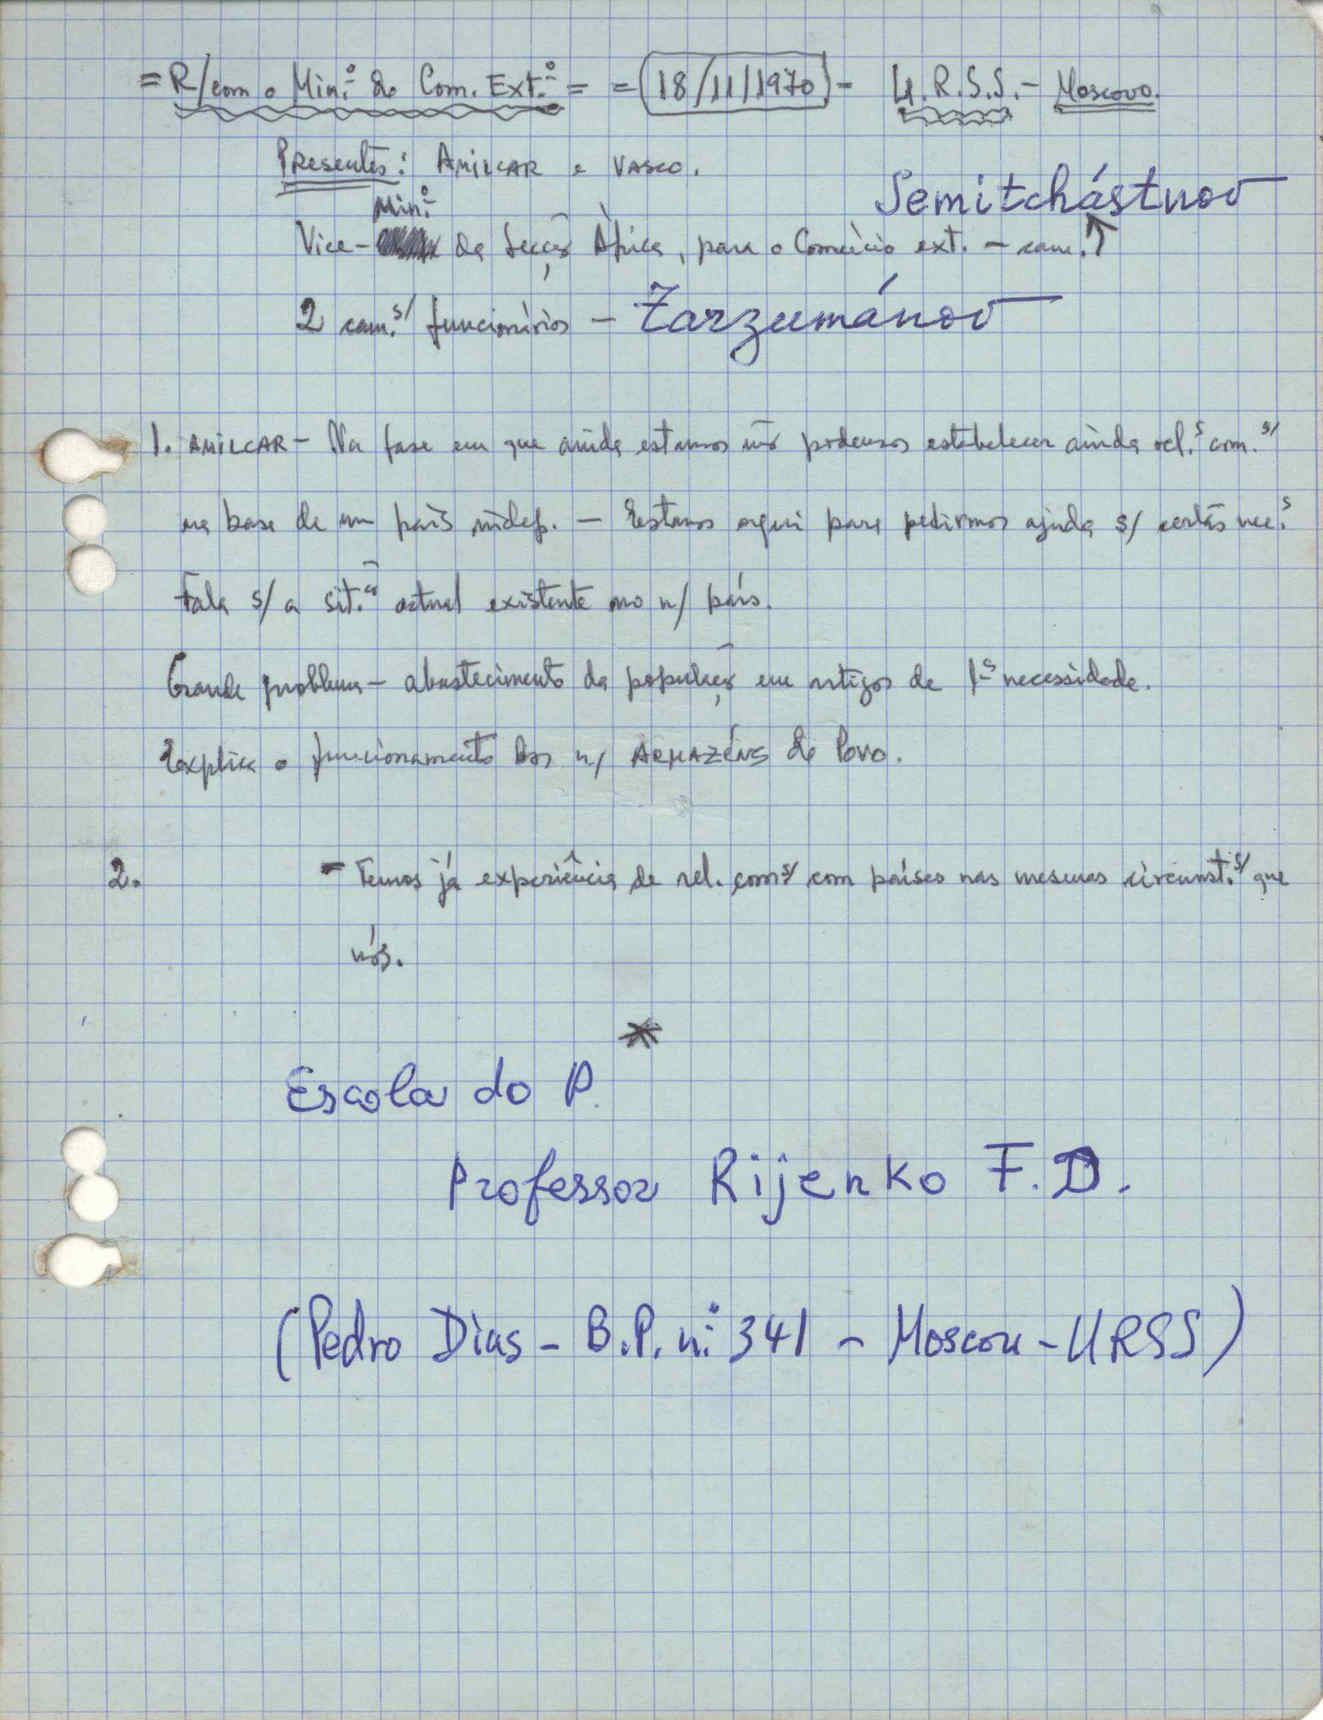 = R/com o Min.º do Com. Ext.º = = (18/11/1970) - U.R.S.S. - Moscovo.
Presentes: AMILCAR e VASCO.
Semitchástnov
Min.º
Vice- da Secção África, para o Comércio ext. - cam. ↑
2 cam.s/ funcionários - Zarzumánov
1. AMILCAR - Na fase em que ainda estamos não podemos estabelecer ainda rel.s com.s/
na base de um país indep. - Estamos aqui para pedirmos ajuda s/ certas nec.s
Fala s/ a sit.ão actual existente no n/ país.
Grande problema - abastecimento da população em artigos de 1ª necessidade.
Explica o funcionamento dos n/ ARMAZÉNS do Povo.
2. - Temos já experiência de rel. coms/ com países nas mesmas circunst.s/ que
nós.
*
Escola do P.
Professor Rijenko F.D.
(Pedro Dias - B.P. n.º 341 - Moscou - URSS)